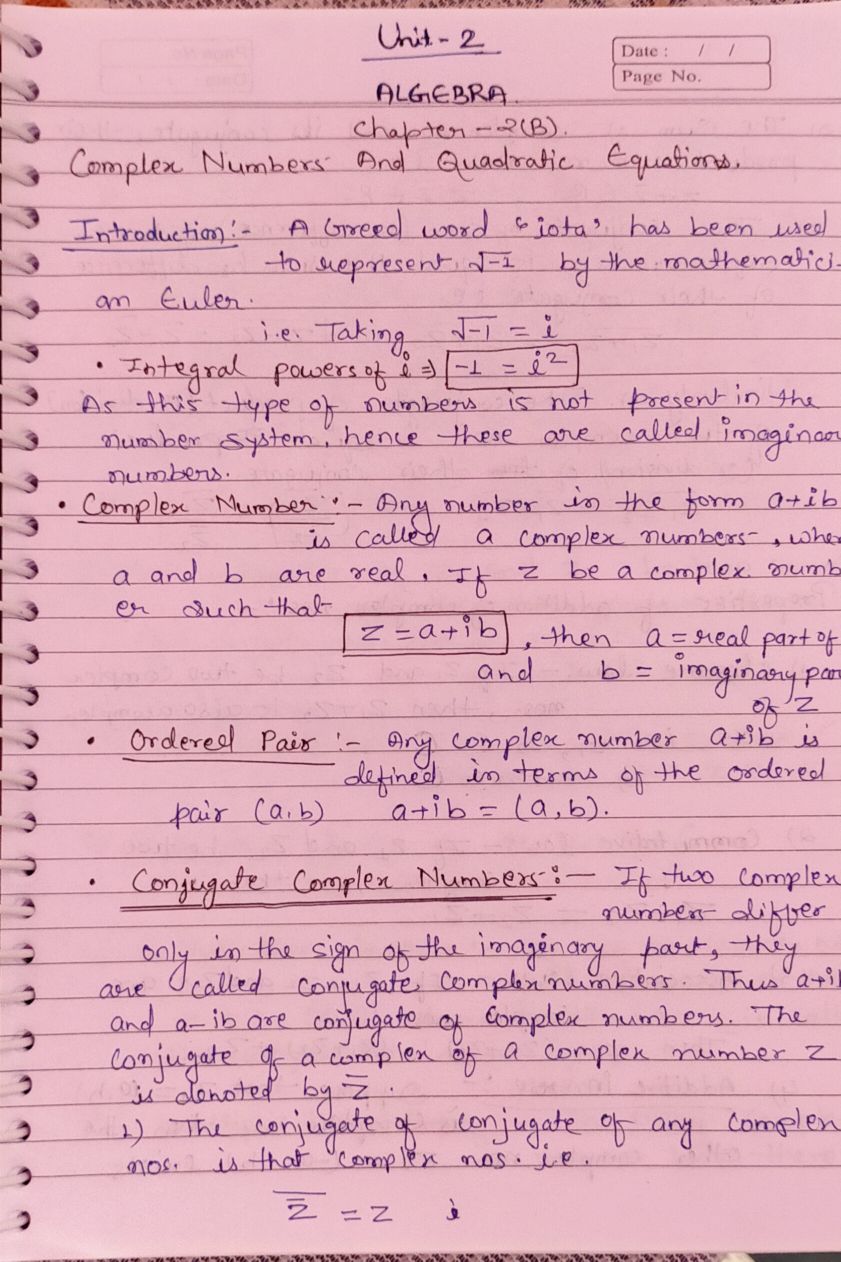 Unit - 2
Date : / /
Page No.
ALGEBRA.
Chapter - 2(B).
Complex Numbers And Quadratic Equations.
Introduction:- A Greed word 'iota' has been used
to represent √-1 by the mathematici-
an Euler.
i.e. Taking √-1 = i
• Integral powers of i ⇒ -1 = i²
As this type of numbers is not present in the
number system, hence these are called imaginar
numbers.
• Complex Number :- Any number in the form a+ib
is called a complex numbers, wher
a and b are real. If z be a complex numb
er such that
z = a+ib, then a = real part of
and b = imaginary par
of z
• Ordered Pair :- Any complex number a+ib is
defined in terms of the ordered
pair (a,b) a+ib = (a,b).
• Conjugate Complex Numbers:- If two complex
numbers differ
only in the sign of the imaginary part, they
are called conjugate complex numbers. Thus a+i
and a-ib are conjugate of complex numbers. The
conjugate of a complex of a complex number z
is denoted by z̅.
1) The conjugate of conjugate of any complex
nos. is that complex nos. i.e.
z̿ = z i